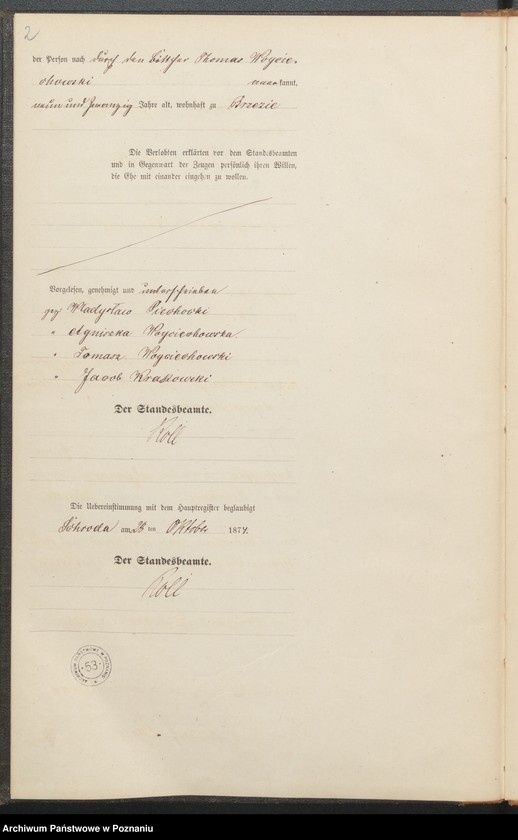 2
der Person nach durch den Böttcher Thomas Woycie-
chowski kannt,
neun und zwanzig Jahre alt, wohnhaft zu Brzezie
Die Verlobten erklärten vor dem Standesbeamten
und in Gegenwart der Zeugen persönlich ihren Willen,
die Ehe mit einander eingehen zu wollen.
Vorgelesen, genehmigt und unterschrieben
gez Wladyslaw Piechocki
" Agnieszka Woyciechowska
" Tomasz Woyciechowski
" Jacob Krakowski
Der Standesbeamte.
Roll
Die Uebereinstimmung mit dem Hauptregister beglaubigt
Schroda am 25 ten Oktober 1874.
Der Standesbeamte.
Roll
ARCHIWUM PAŃSTWOWE W POZNANIU
53
Archiwum Państwowe w Poznaniu